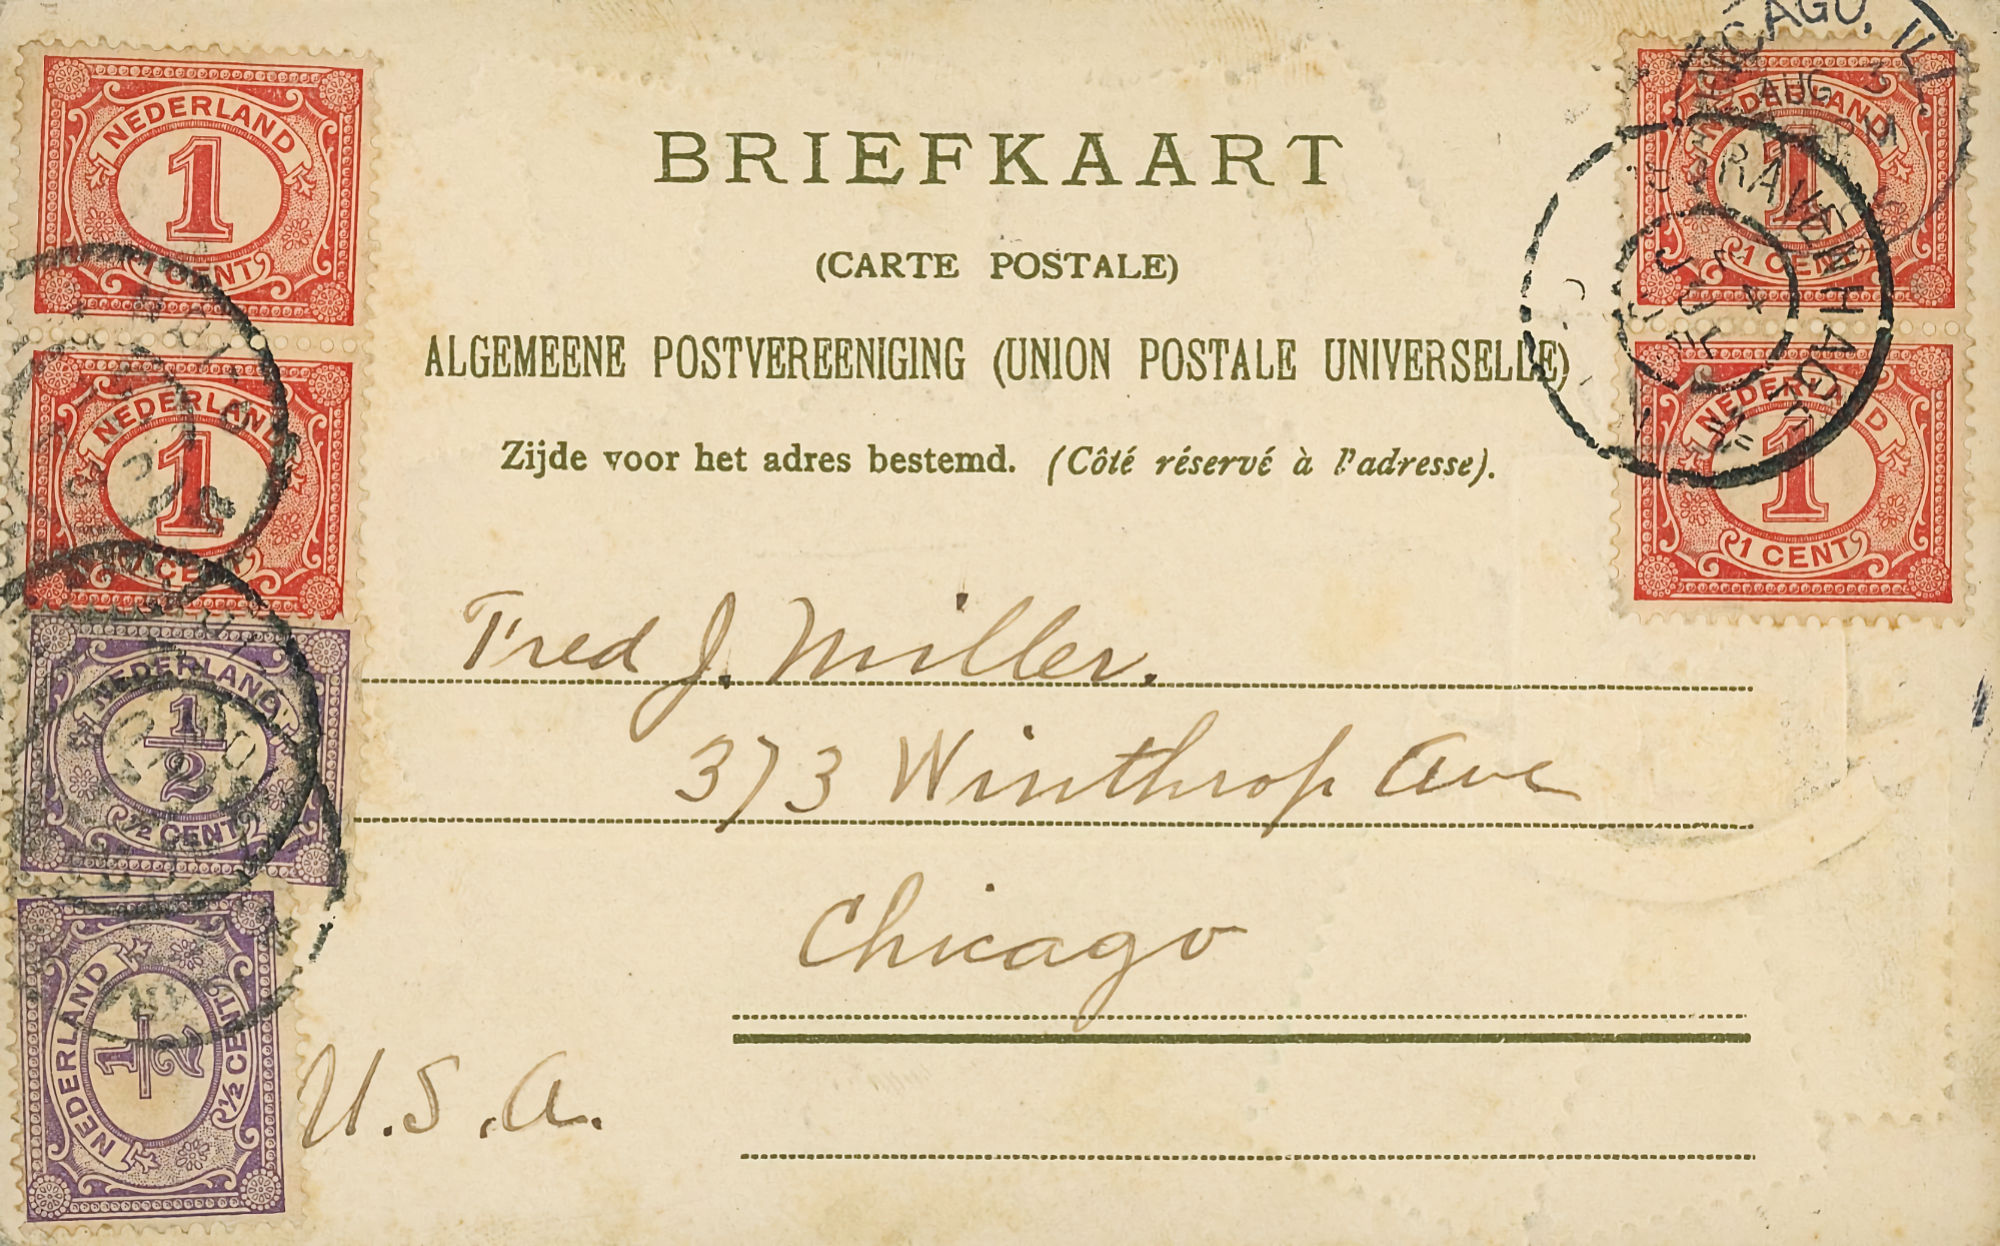 BRIEFKAART
(CARTE POSTALE)
ALGEMEENE POSTVEREENIGING (UNION POSTALE UNIVERSELLE)
Zijde voor het adres bestemd. (Côté réservé à l'adresse).
Fred J. Miller.
373 Winthrop Ave
Chicago
U.S.A.
NEDERLAND
1
1 CENT
NEDERLAND
1
1 CENT
NEDERLAND
1/2
½ CENT
NEDERLAND
1/2
½ CENT
NEDERLAND
1
1 CENT
NEDERLAND
1
1 CENT
CHICAGO, ILL.
AUG
'S GRAVENHAGE
JUL